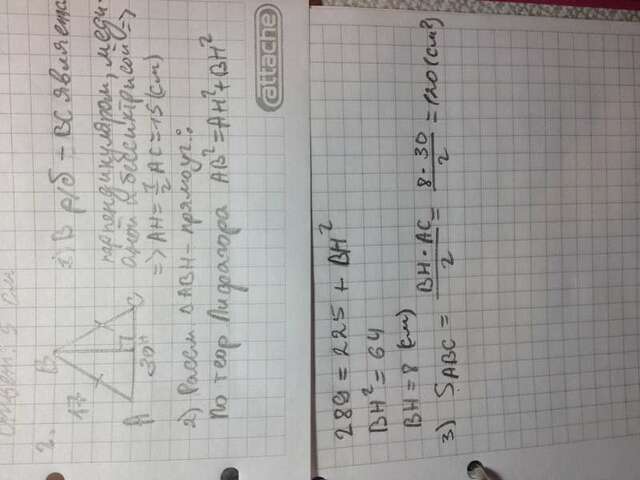 Ответ: 5 см
2.
B
17
A
C
H
30
1) В р/б – BC является
перпендикуляром, меди-
аной и биссиктрисой =>
=> AH = 1/2 AC = 15 (см)
2) Рассм △ABH – прямоуг.:
По теор Пифагора AB² = AH² + BH²
attache
289 = 225 + BH²
BH² = 64
BH = 8 (см)
3) S ABC = BH · AC / 2 = 8 · 30 / 2 = 120 (см²)